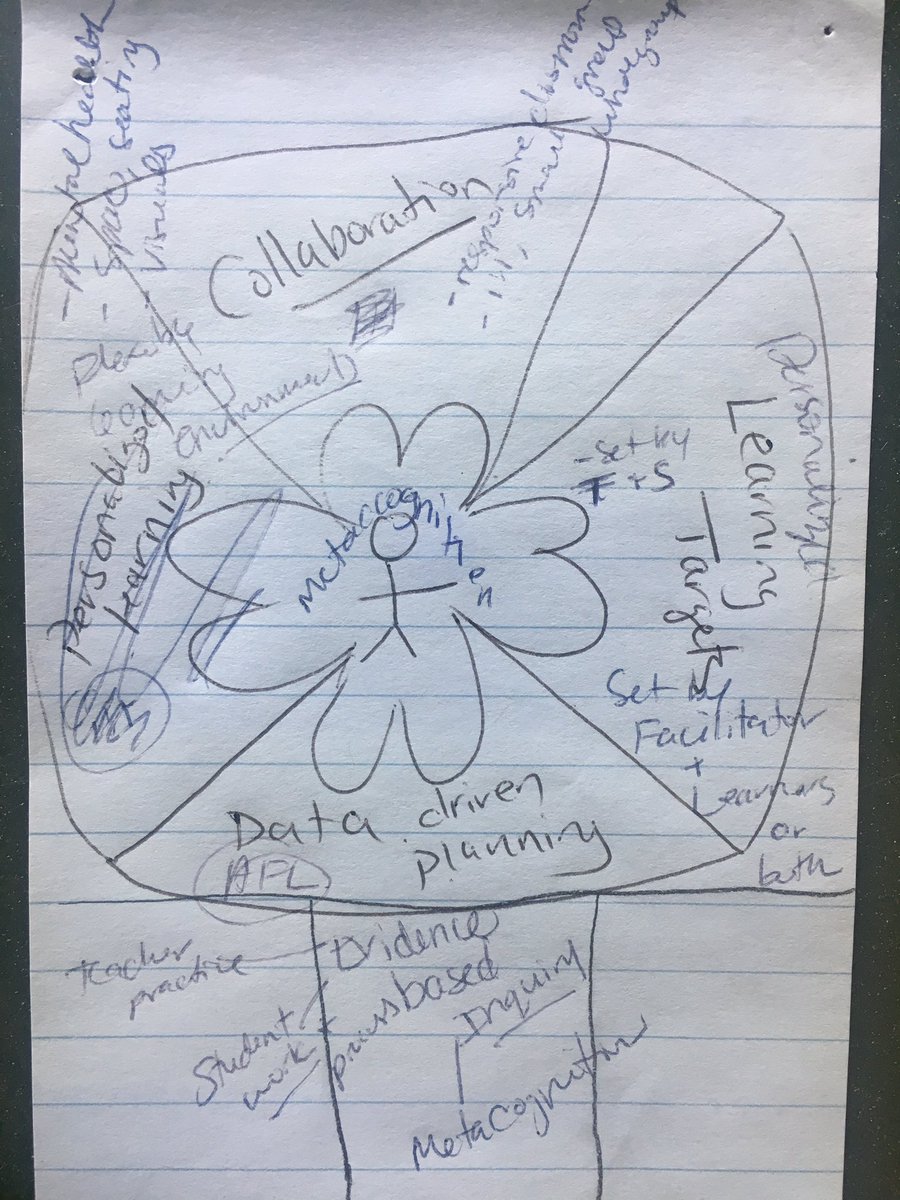 - Mental health
- space, seating
visuals
- responsive classroom
- " " small group
whole group
Collaboration
flexible
learning
environment
Personalized
Learning
Metaccognition
- Set by
T + S
Personalized
Learning
Targets
Set by
Facilitator
+
Learners
or
both
Data driven
planning
AFL
Evidence
based
Teacher
practice
Student
work
Inquiry
MetaCognition